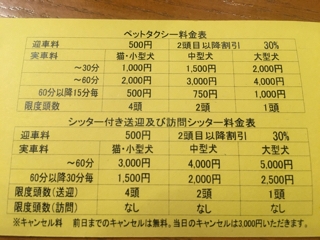 ペットタクシー料金表
迎車料 500円 2頭目以降割引 30%
実車料 猫・小型犬 中型犬 大型犬
～30分 1,000円 1,500円 2,000円
～60分 2,000円 3,000円 4,000円
60分以降15分毎 500円 750円 1,000円
限度頭数 4頭 2頭 1頭
シッター付き送迎及び訪問シッター料金表
迎車料 500円 2頭目以降割引 30%
実車料 猫・小型犬 中型犬 大型犬
～60分 3,000円 4,000円 5,000円
60分以降30分毎 1,500円 2,000円 2,500円
限度頭数(送迎) 4頭 2頭 1頭
限度頭数(訪問) なし なし なし
※キャンセル料 前日までのキャンセルは無料。当日のキャンセルは3,000円いただきます。